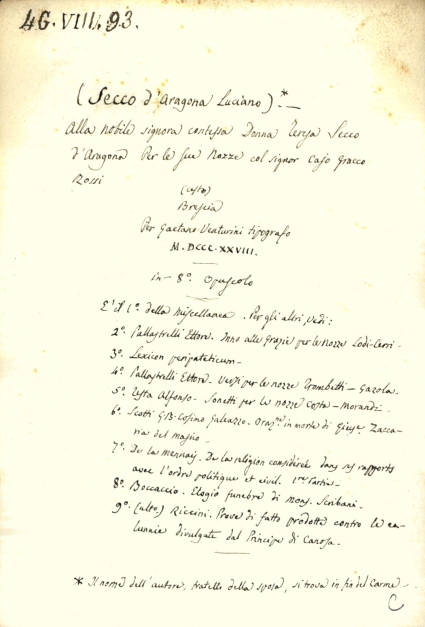 4G. VIII. 93.
(Secco d'Aragona Luciano).*—
Alla nobile signora contessa Donna Teresa Secco
d'Aragona Per le sue Nozze col signor Cajo Gracco
Rossi
Brescia
Per Gaetano Venturini tipografo
M.DCCC.XXVIII.
in-8º. Opuscolo
E' il 1º. della miscellanea. Per gli altri, vedi:
2º. Pallastrelli Ettore. Inno alle Grazie per le nozze Lodi-Cerri-
3º. Lexicon peripateticum-
4º. Pallastrelli Ettore. Versi per le nozze Trombetti-Gazola.
5º. Testa Alfonso. Sonetti per le nozze Costa-Morandi.
6º. Scotti G.B. Cosimo Galeazzo. Oraz.ne in morte di Gius.e Zacca-
ria del maino.
7º. De la mennais. De la religion considérée dans ses rapports
avec l'ordre politique et civil. 1re Partie-
8º. Boccaccio. Elogio funebre di Mons. Scribani.
9º. (alto) Riccini. Prove di fatto prodotte contro le ca-
lunnie divulgate dal Principe di Canosa.
* Il nome dell'autore, fratello della sposa, si trova in fin del Carme-
C